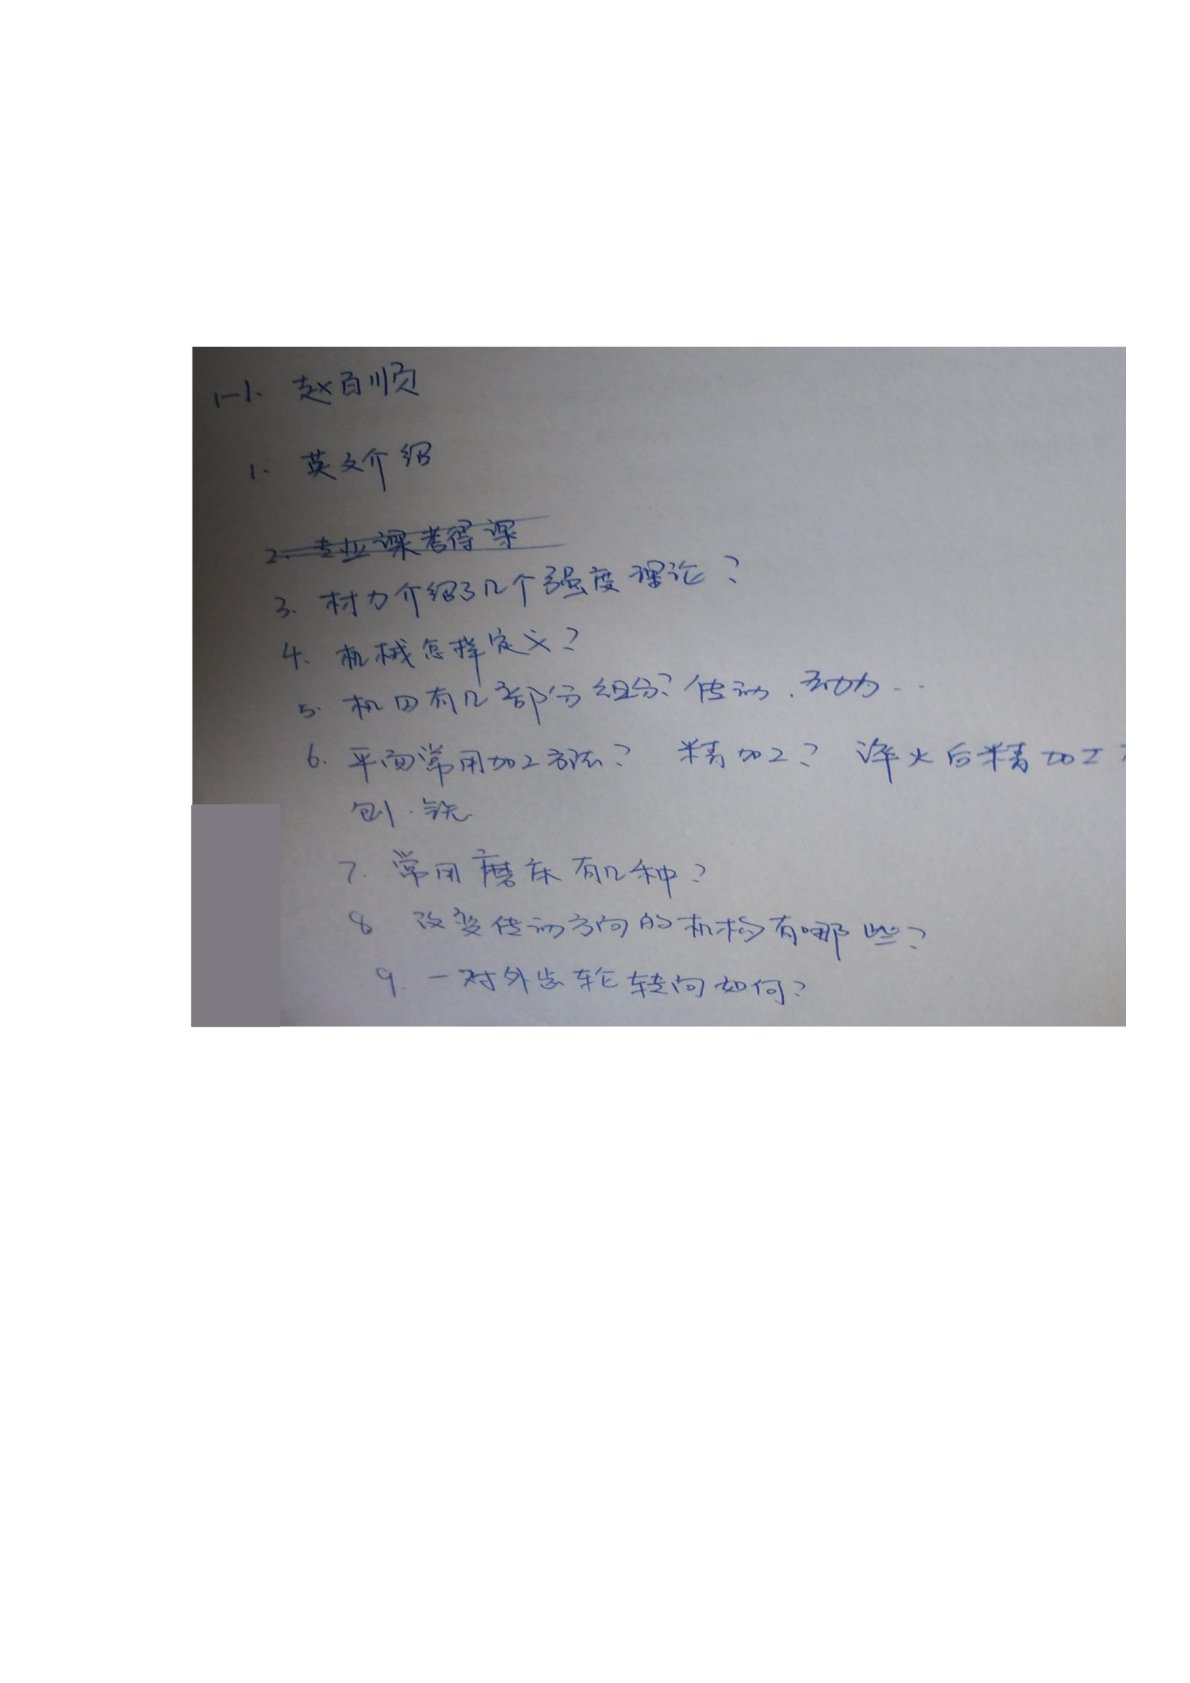 1-1. 赵百顺
1. 英文介绍
2. 专业课考得课
3. 材力介绍了几个强度理论?
4. 机械怎样定义?
5. 机口有几部分组分? 传动、动力...
6. 平面常用加工方法? 精加工? 淬火后精加工?
刨.铣.
7. 常用磨床有几种?
8 改变传动方向的机构有哪些?
9. 一对外齿轮转向如何?